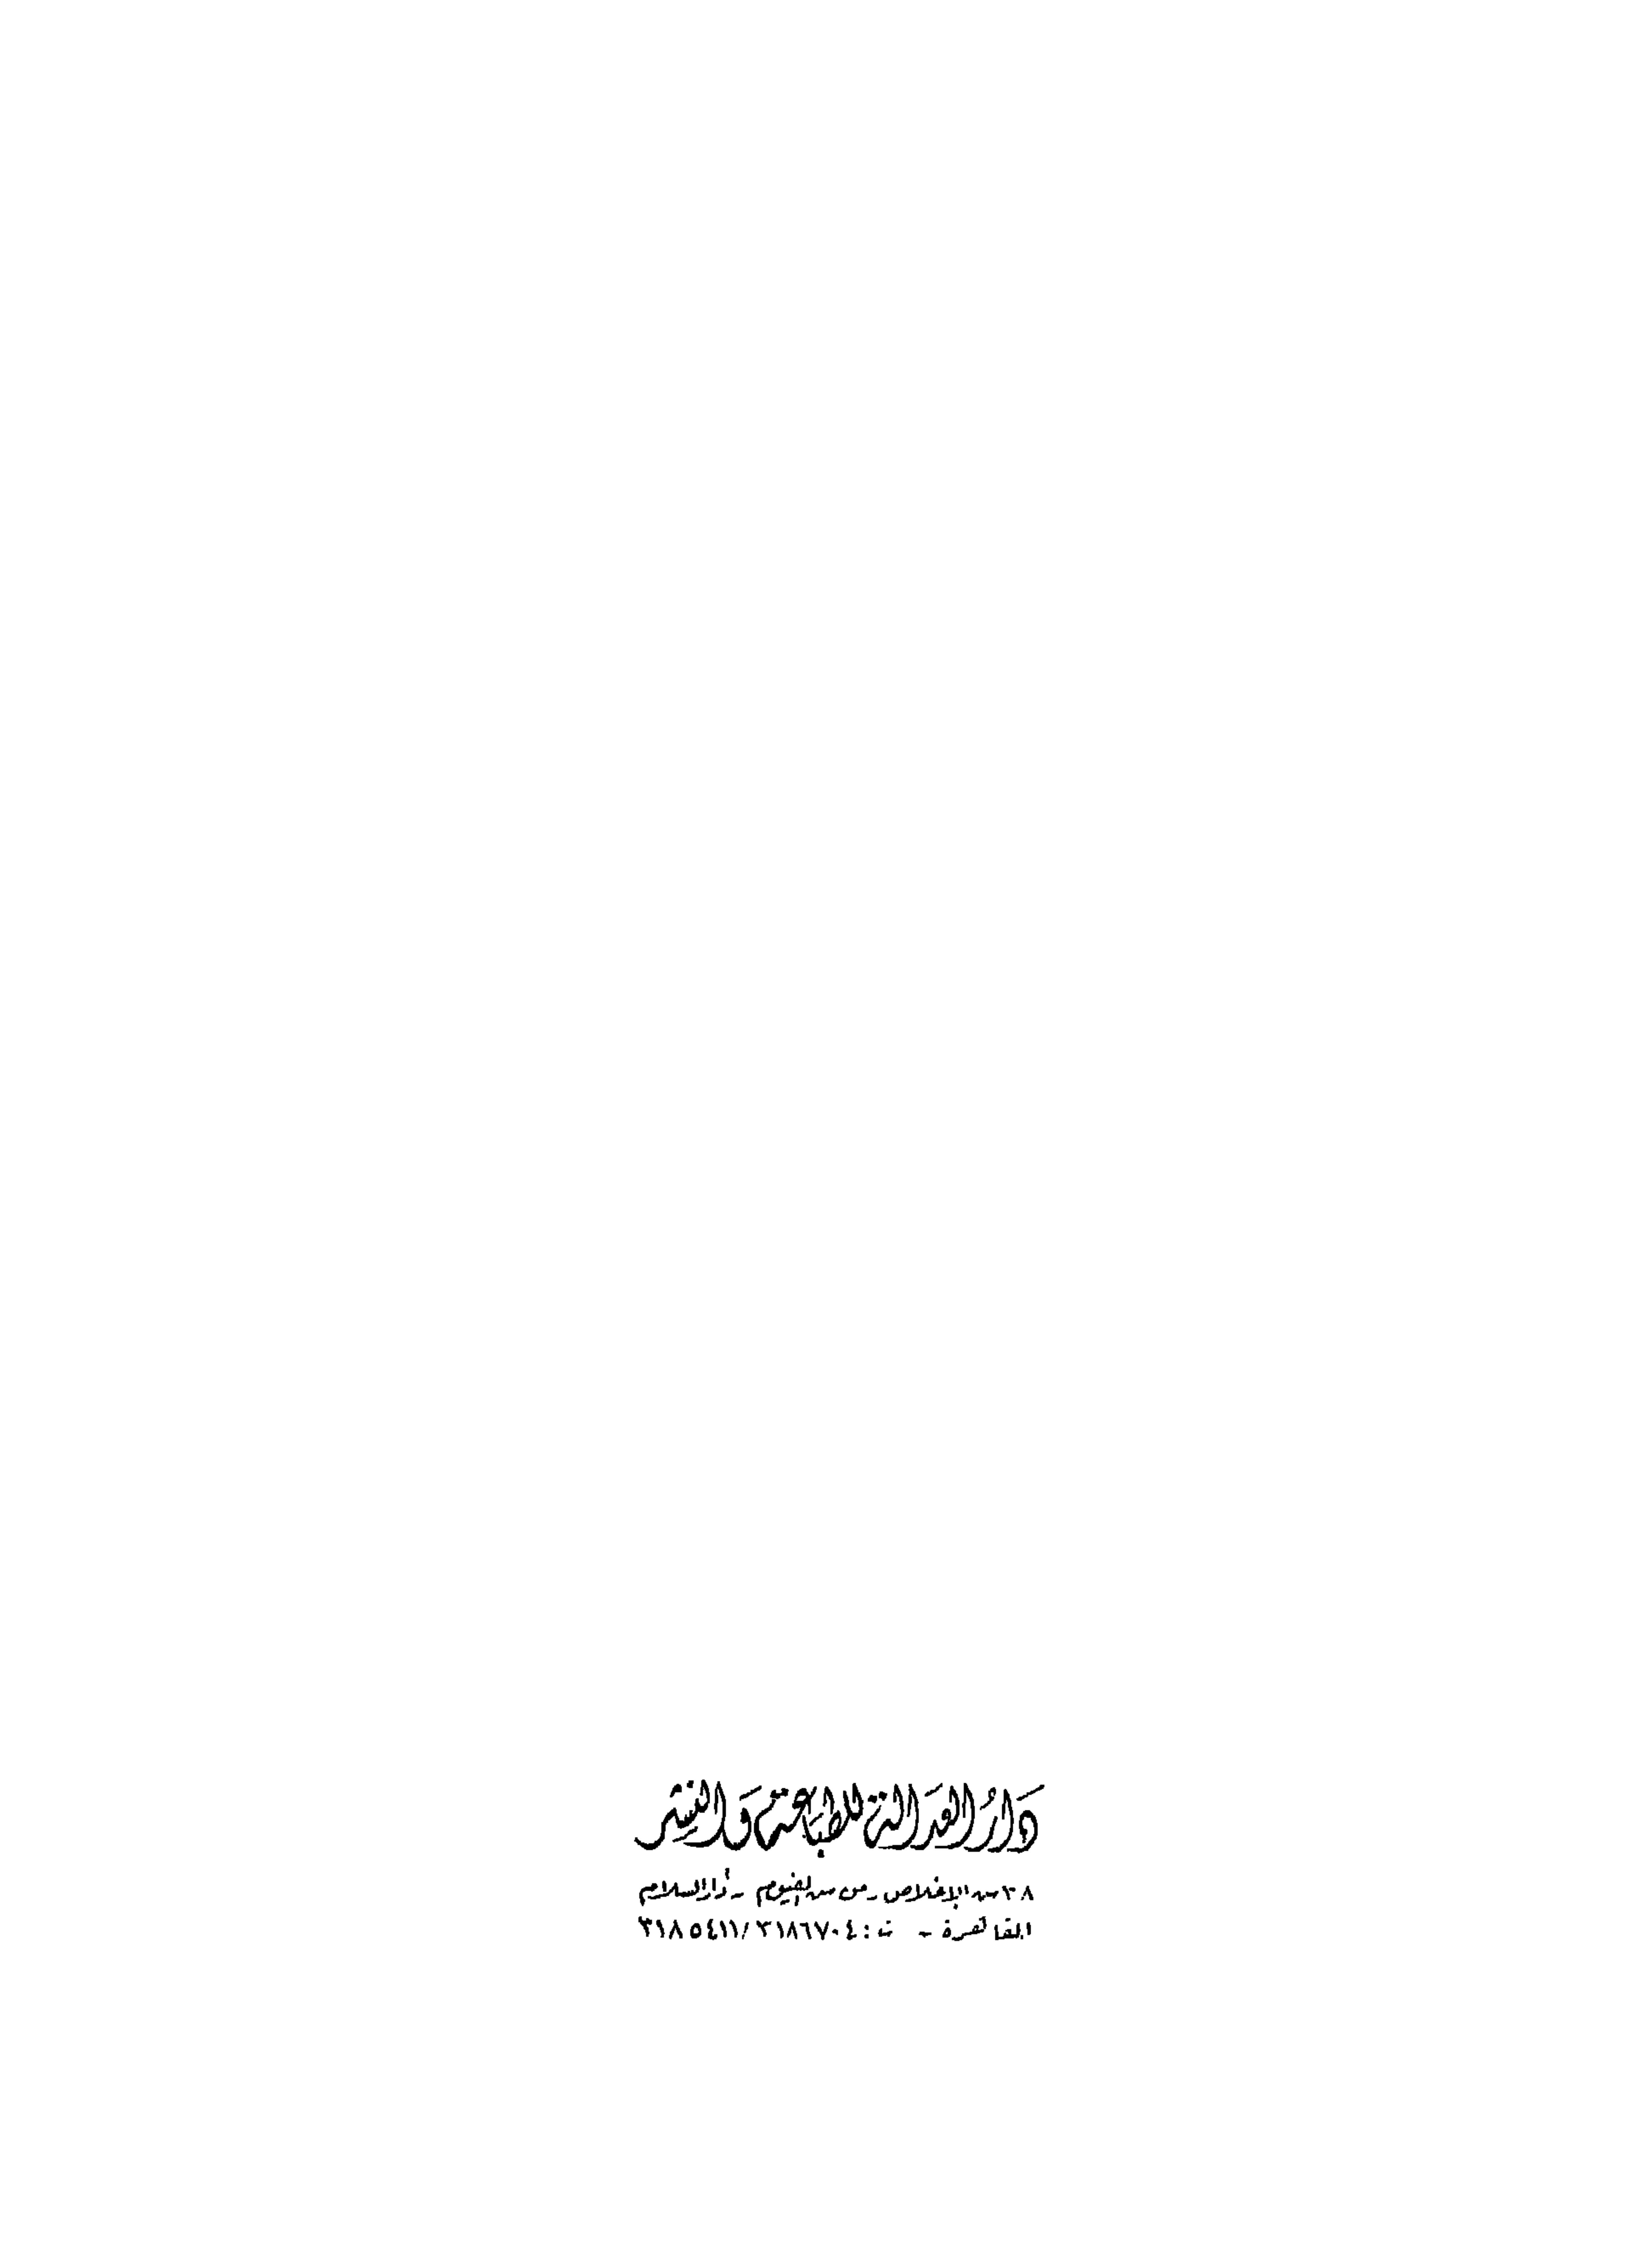 دَارُ العَدَالَة للطبَاعَة وَالنشر
٣٨ ش الإخلاص - من ش الفيوم - دار السلام
القاهرة - ت : ٣١٨٦٧٠٤ / ٣١٨٥٤١١